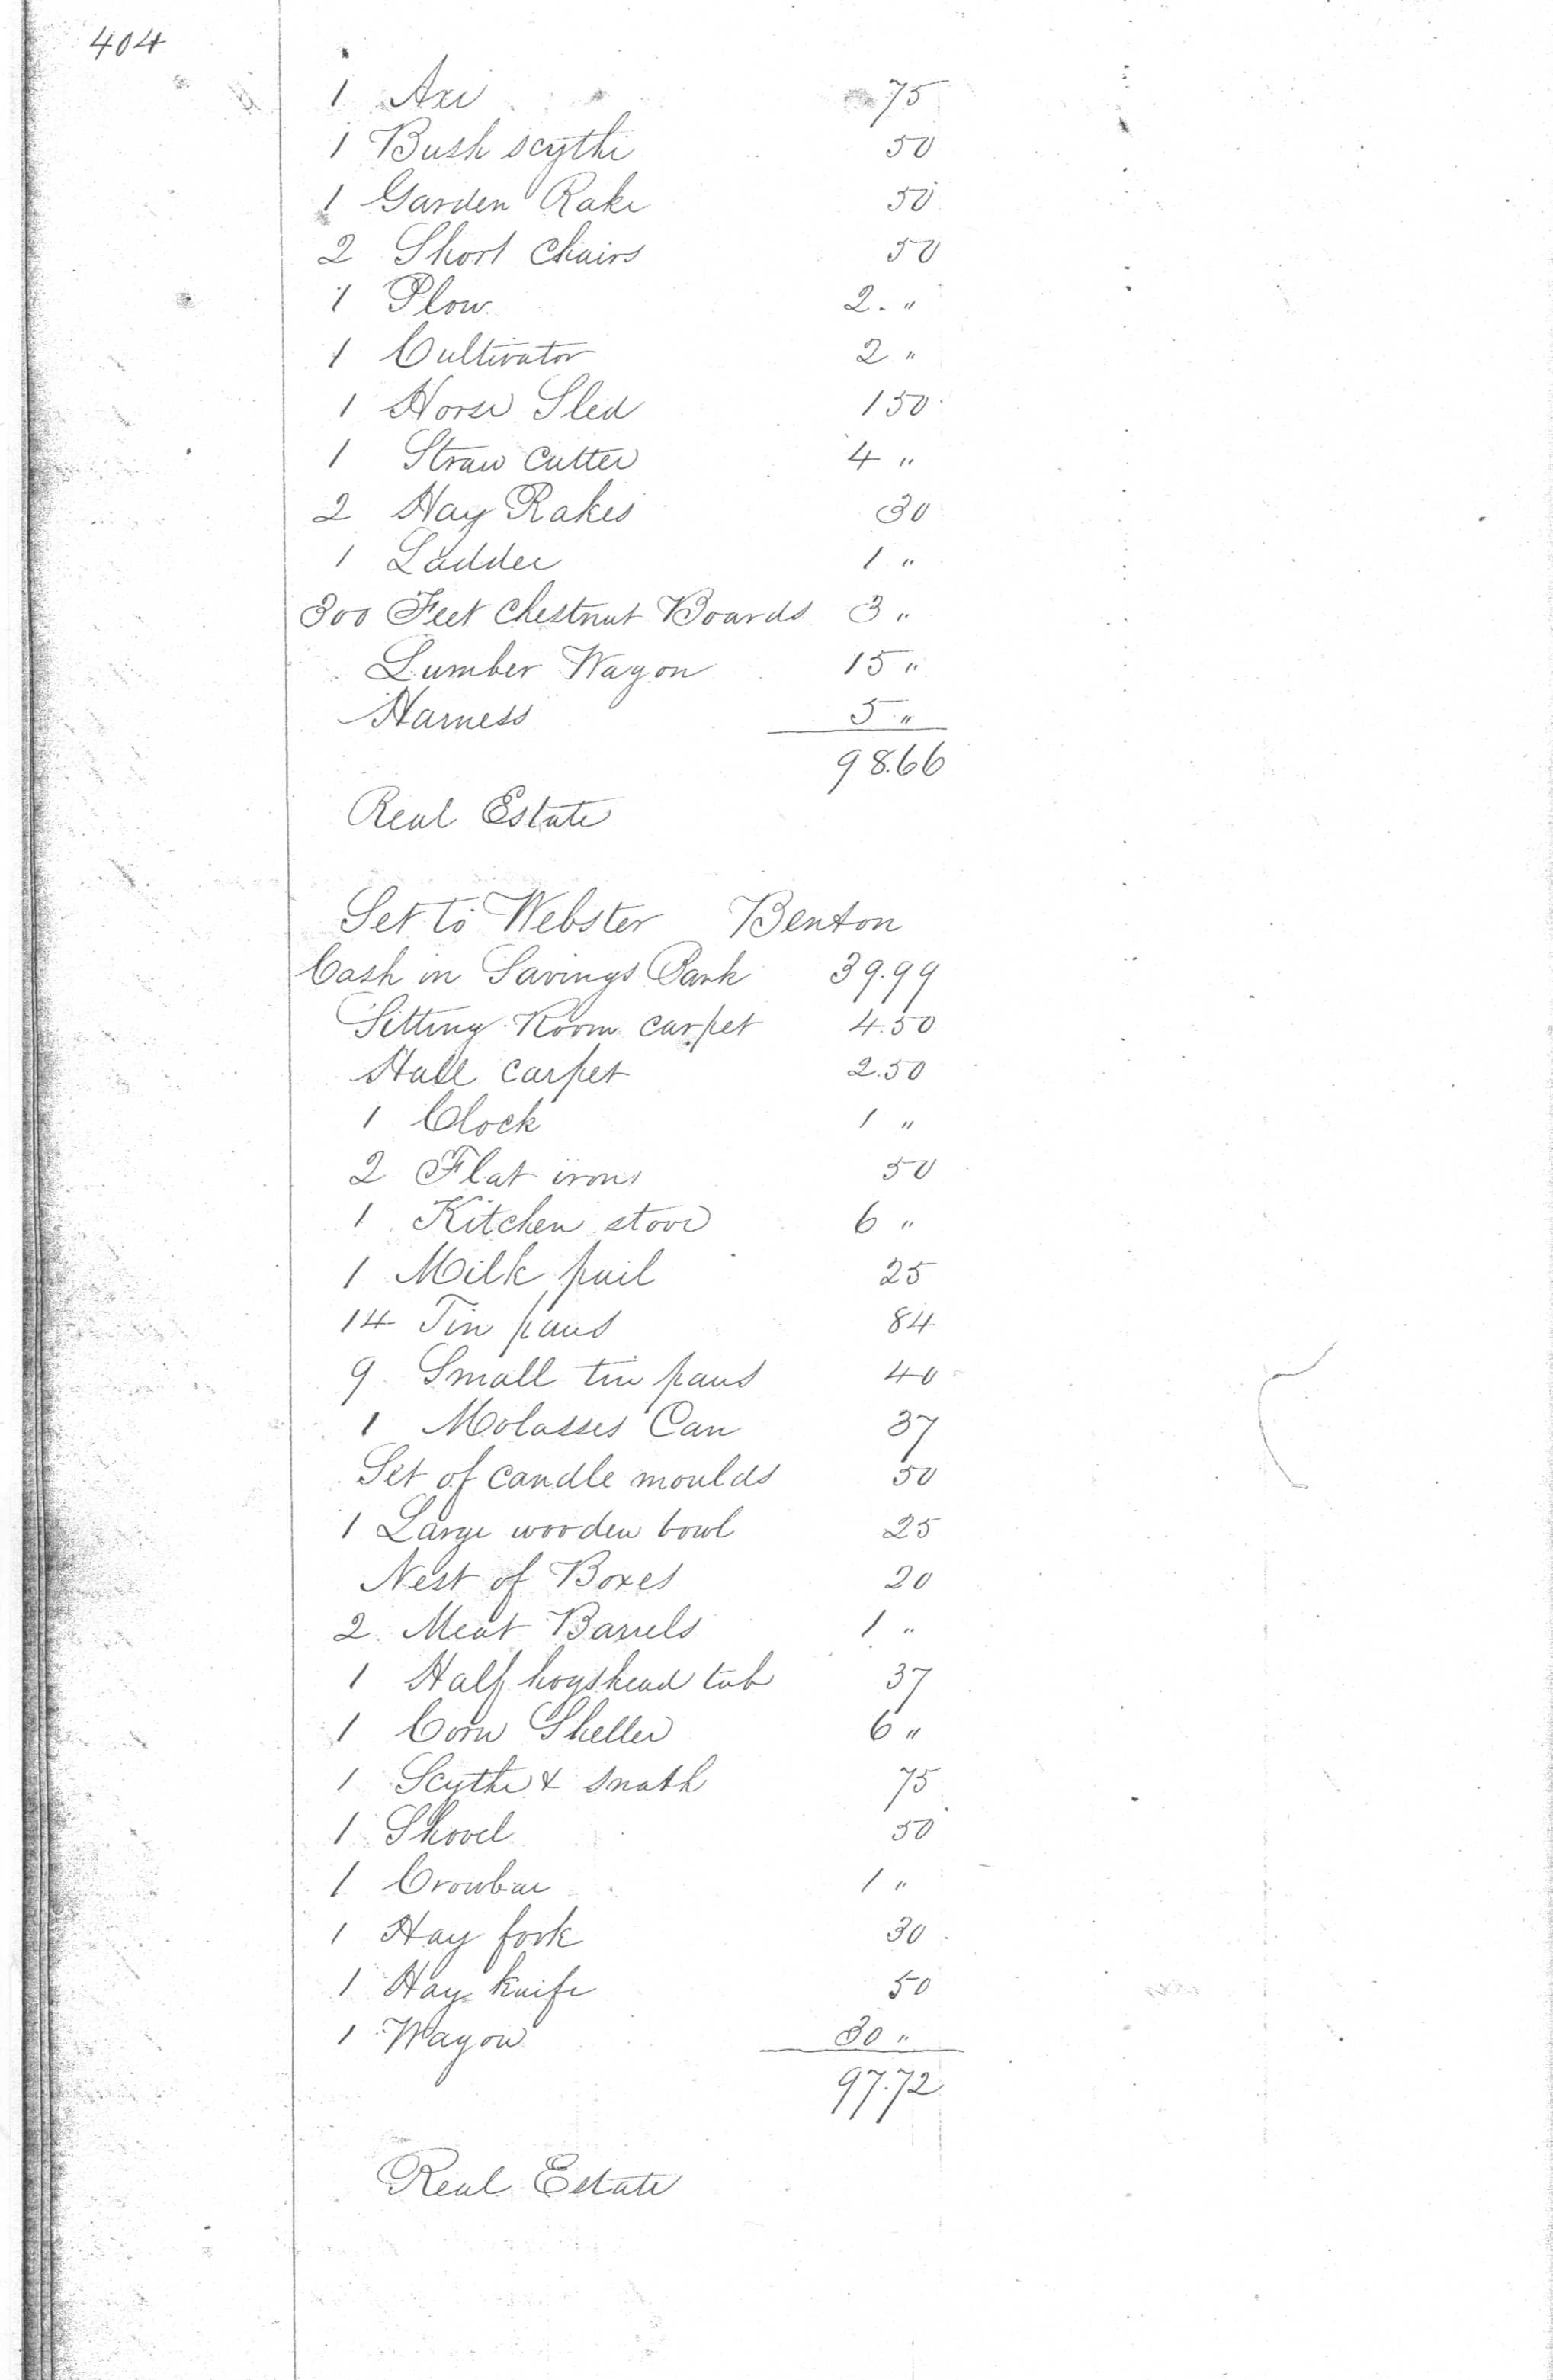 404
1 Axe 75
1 Bush scythe 50
1 Garden Rake 50
2 Short Chairs 50
1 Plow 2. "
1 Cultivator 2 "
1 Horse Sled 150
1 Straw Cutter 4 "
2 Hay Rakes 30
1 Ladder 1 "
300 Feet Chestnut Boards 3 "
Lumber Wagon 15 "
Harness 5 "
98.66
Real Estate
Set to Webster Benton
Cash in Savings Bank 39.99
Sitting Room carpet 4.50
Hall carpet 2.50
1 Clock 1 "
2 Flat irons 50
1 Kitchen stove 6 "
1 Milk pail 25
14 Tin pans 84
9 Small tin pans 40
1 Molasses Can 37
Set of candle moulds 50
1 Large wooden bowl 25
Nest of Boxes 20
2 Meat Barrels 1 "
1 Half hogshead tub 37
1 Corn Sheller 6 "
1 Scythe & snath 75
1 Shovel 50
1 Crowbar 1 "
1 Hay fork 30
1 Hay knife 50
1 Wagon 30 "
97.72
Real Estate